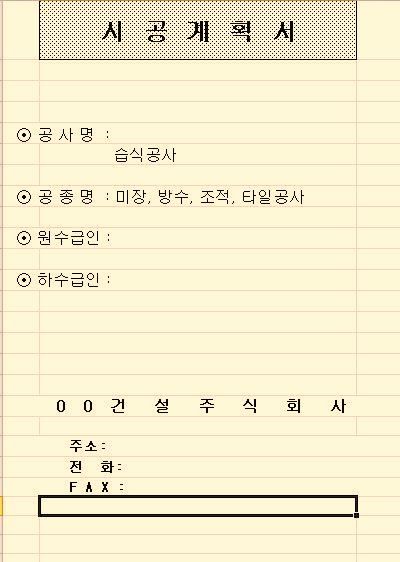 시 공 계 획 서
⊙ 공 사 명 :
습식공사
⊙ 공 종 명 : 미장, 방수, 조적, 타일공사
⊙ 원수급인 :
⊙ 하수급인 :
0 0 건 설 주 식 회 사
주소:
전 화:
F A X :